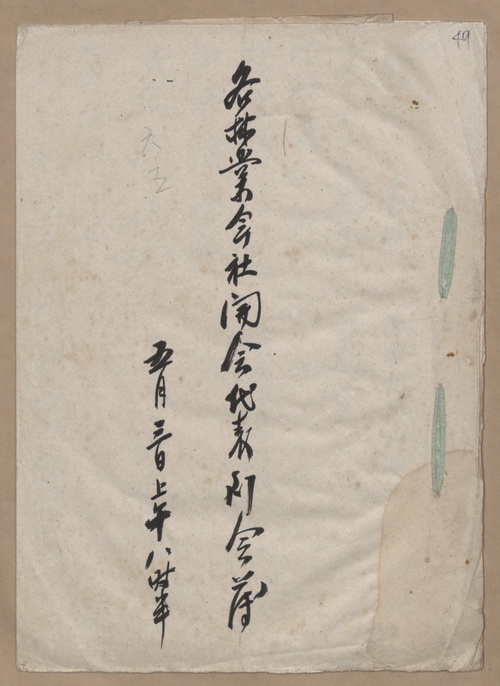 49
各林業会社開会代表到会簿
五月三日上午八时半
六五